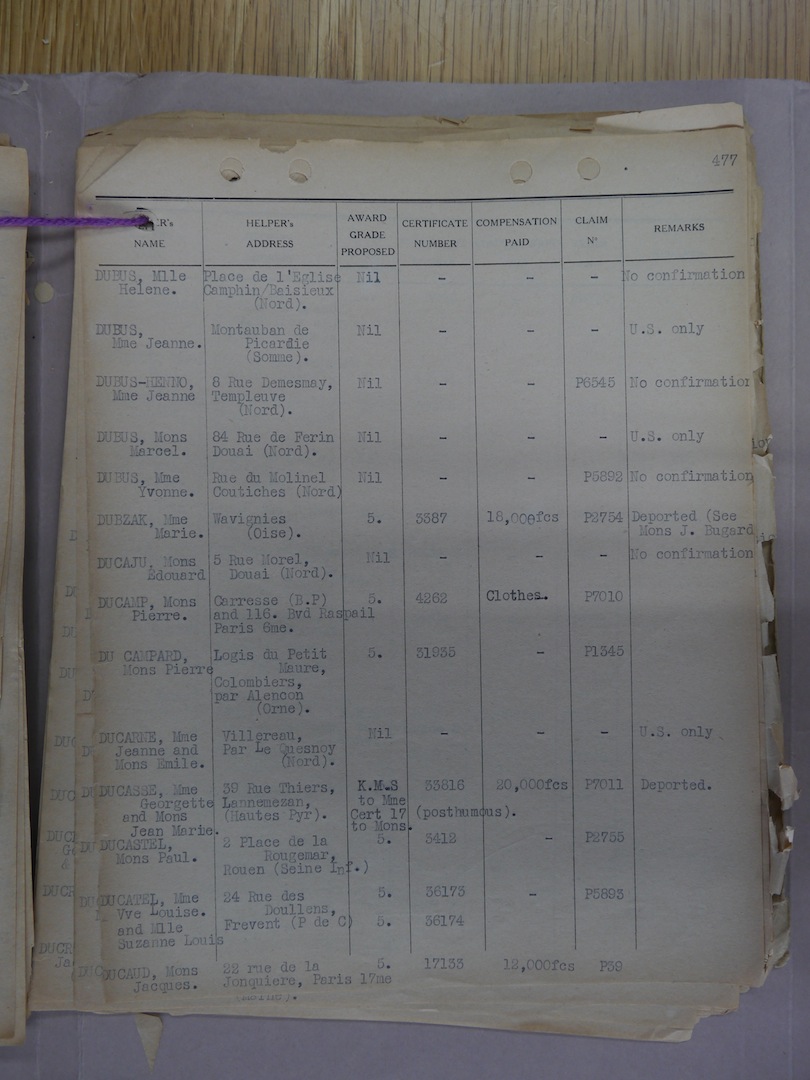 477
HELPER's AWARD CERTIFICATE COMPENSATION CLAIM
NAME ADDRESS GRADE PROPOSED NUMBER PAID N° REMARKS
DUBUS, Mlle Place de l'Eglise Nil - - - No confirmation
Helene. Camphin/Baisieux
(Nord).
DUBUS, Montauban de Nil - - - U.S. only
Mme Jeanne. Picardie
(Somme).
DUBUS-HENNO, 8 Rue Demesmay, Nil - - P6545 No confirmation
Mme Jeanne Templeuve
(Nord).
DUBUS, Mons 84 Rue de Ferin Nil - - - U.S. only
Marcel. Douai (Nord).
DUBUS, Mme Rue du Molinel Nil - - P5892 No confirmation
Yvonne. Coutiches (Nord)
DUBZAK, Mme Wavignies 5. 3387 18,000fcs P2754 Deported (See
Marie. (Oise). Mons J. Bugard
DUCAJU, Mons 5 Rue Morel, Nil - - - No confirmation
Edouard Douai (Nord).
DUCAMP, Mons Carresse (B.P) 5. 4262 Clothes. P7010
Pierre. and 116. Bvd Raspail
Paris 6me.
DU CAMPARD, Logis du Petit 5. 31935 - P1345
Mons Pierre Maure,
Colombiers,
par Alencon
(Orne).
DUCARNE, Mme Villereau, Nil - - - U.S. only
Jeanne and Par Le Quesnoy
Mons Emile. (Nord).
DUCASSE, Mme 39 Rue Thiers, K.M.S 33816 20,000fcs P7011 Deported.
Georgette Lannemezan, to Mme
and Mons (Hautes Pyr). Cert 17 (posthumous).
Jean Marie. to Mons.
DUCASTEL, 2 Place de la 5. 3412 - P2755
Mons Paul. Rougemar,
Rouen (Seine Inf.)
DUCATEL, Mme 24 Rue des 5. 36173 - P5893
Vve Louise. Doullens,
and Mlle Frevent (P de C) 5. 36174
Suzanne Louis
DUCAUD, Mons 22 rue de la 5. 17133 12,000fcs P39
Jacques. Jonquiere, Paris 17me